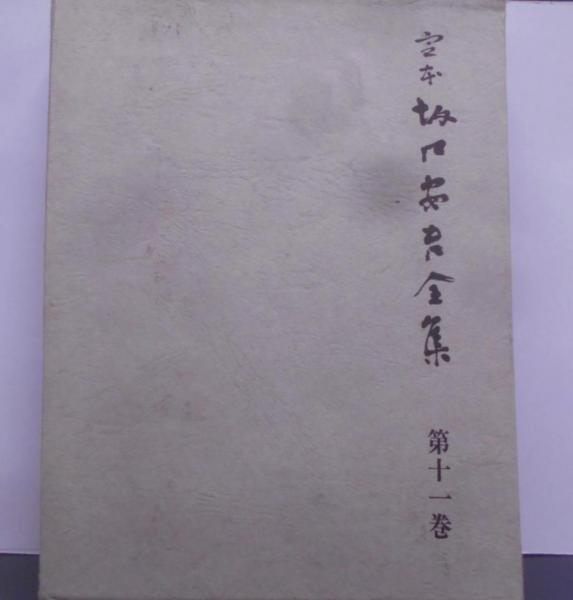 定本 坂口安吾全集 第十一巻